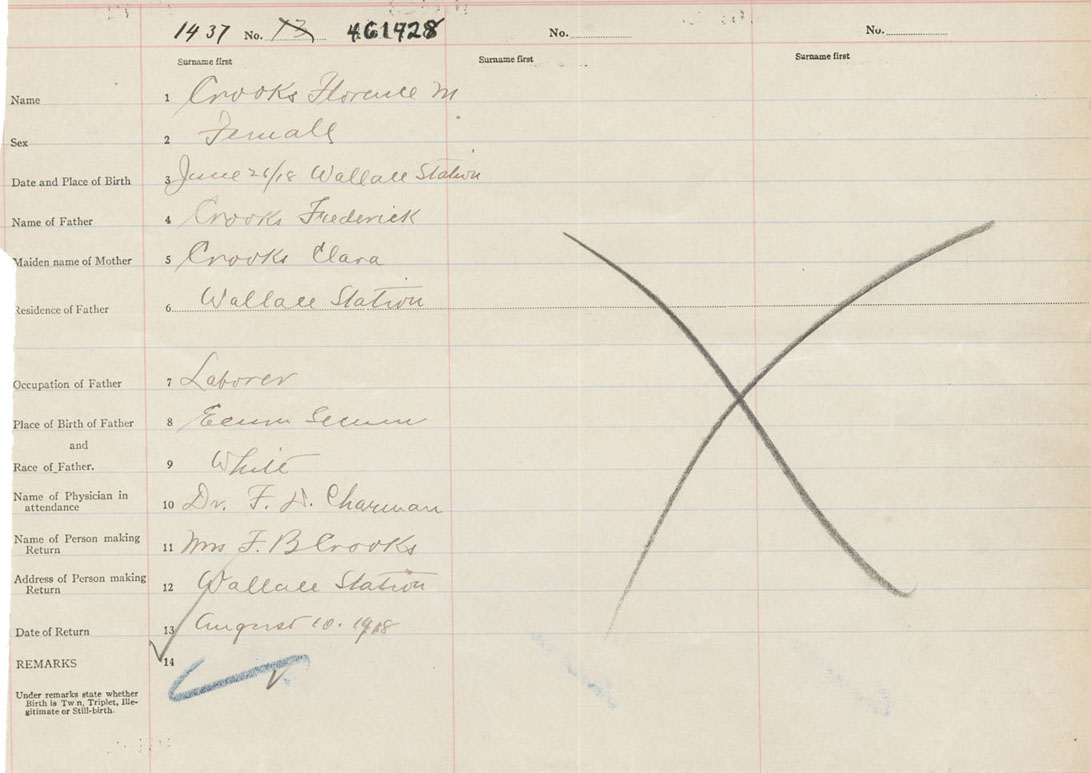 1437 No. 13 461428 No. No.
Surname first Surname first Surname first
Name 1 Crooks Florence M
Sex 2 Female
Date and Place of Birth 3 June 26/18 Wallace Station
Name of Father 4 Crooks Frederick
Maiden name of Mother 5 Crooks Clara
Residence of Father 6 Wallace Station
Occupation of Father 7 Laborer
Place of Birth of Father 8 Ecum Secum
and
Race of Father. 9 White
Name of Physician in
attendance 10 Dr. F. D. Charman
Name of Person making
Return 11 Mrs F. B Crooks
Address of Person making
Return 12 Wallace Station
Date of Return 13 August 10. 1918
REMARKS 14
Under remarks state whether
Birth is Twin, Triplet, Ille-
gitimate or Still-birth.